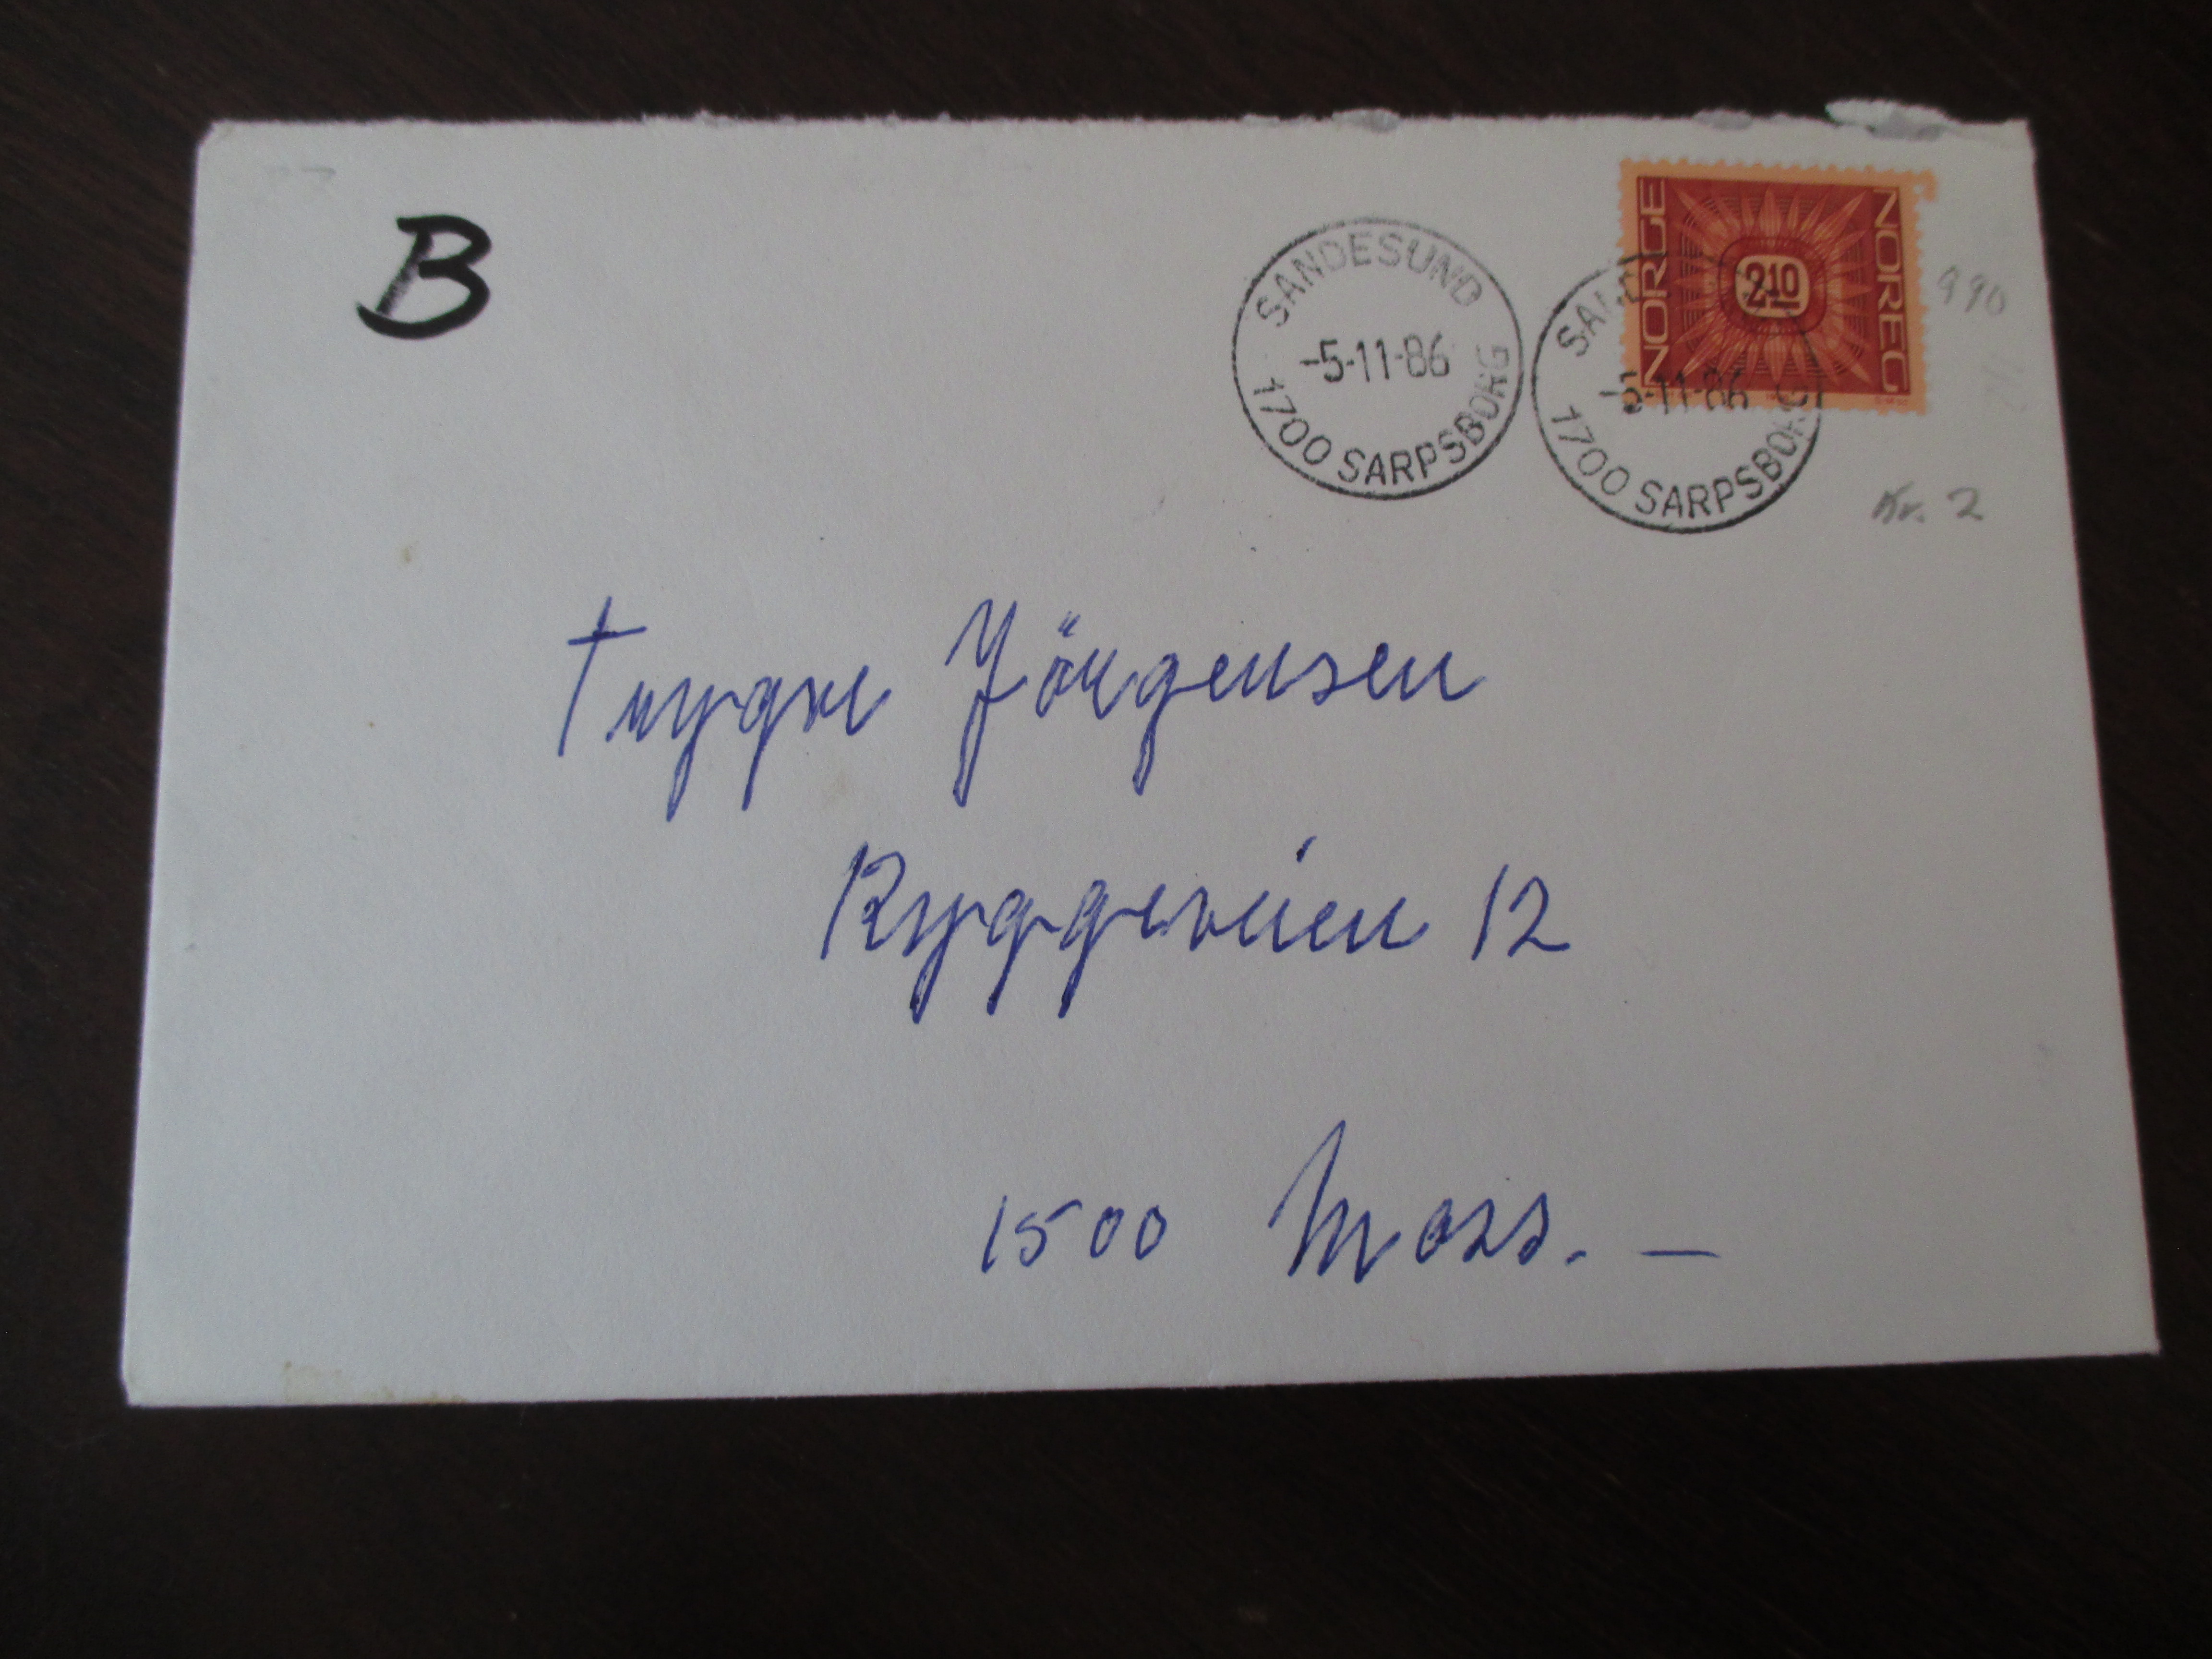 B
SANDESUND
-5-11-86
1700 SARPSBORG
NORGE
2.10
NOREG
-5-11-86
1700 SARPSBORG
990
Kr. 2
Trygve Jörgensen
Ryggeveien 12
1500 Moss. —